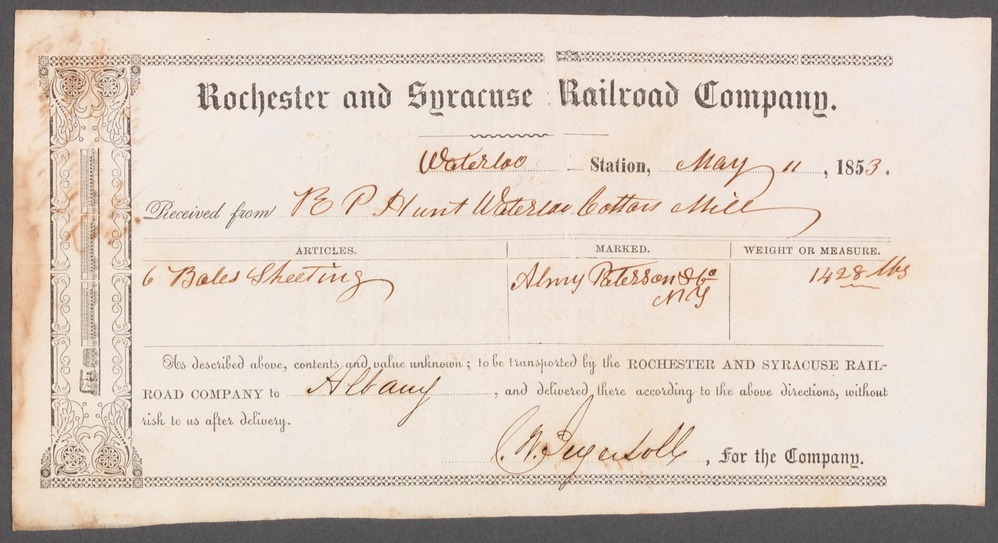 Rochester and Syracuse Railroad Company.
Waterloo Station, May 11, 1853.
Received from R P Hunt Waterloo Cotton Mill
ARTICLES. MARKED. WEIGHT OR MEASURE.
6 Bales Sheeting Almy Paterson & Co 1428 lbs
N.Y
As described above, contents and value unknown; to be transported by the ROCHESTER AND SYRACUSE RAIL-
ROAD COMPANY to Albany, and delivered there according to the above directions, without
risk to us after delivery.
C. W. Ingersoll, For the Company.